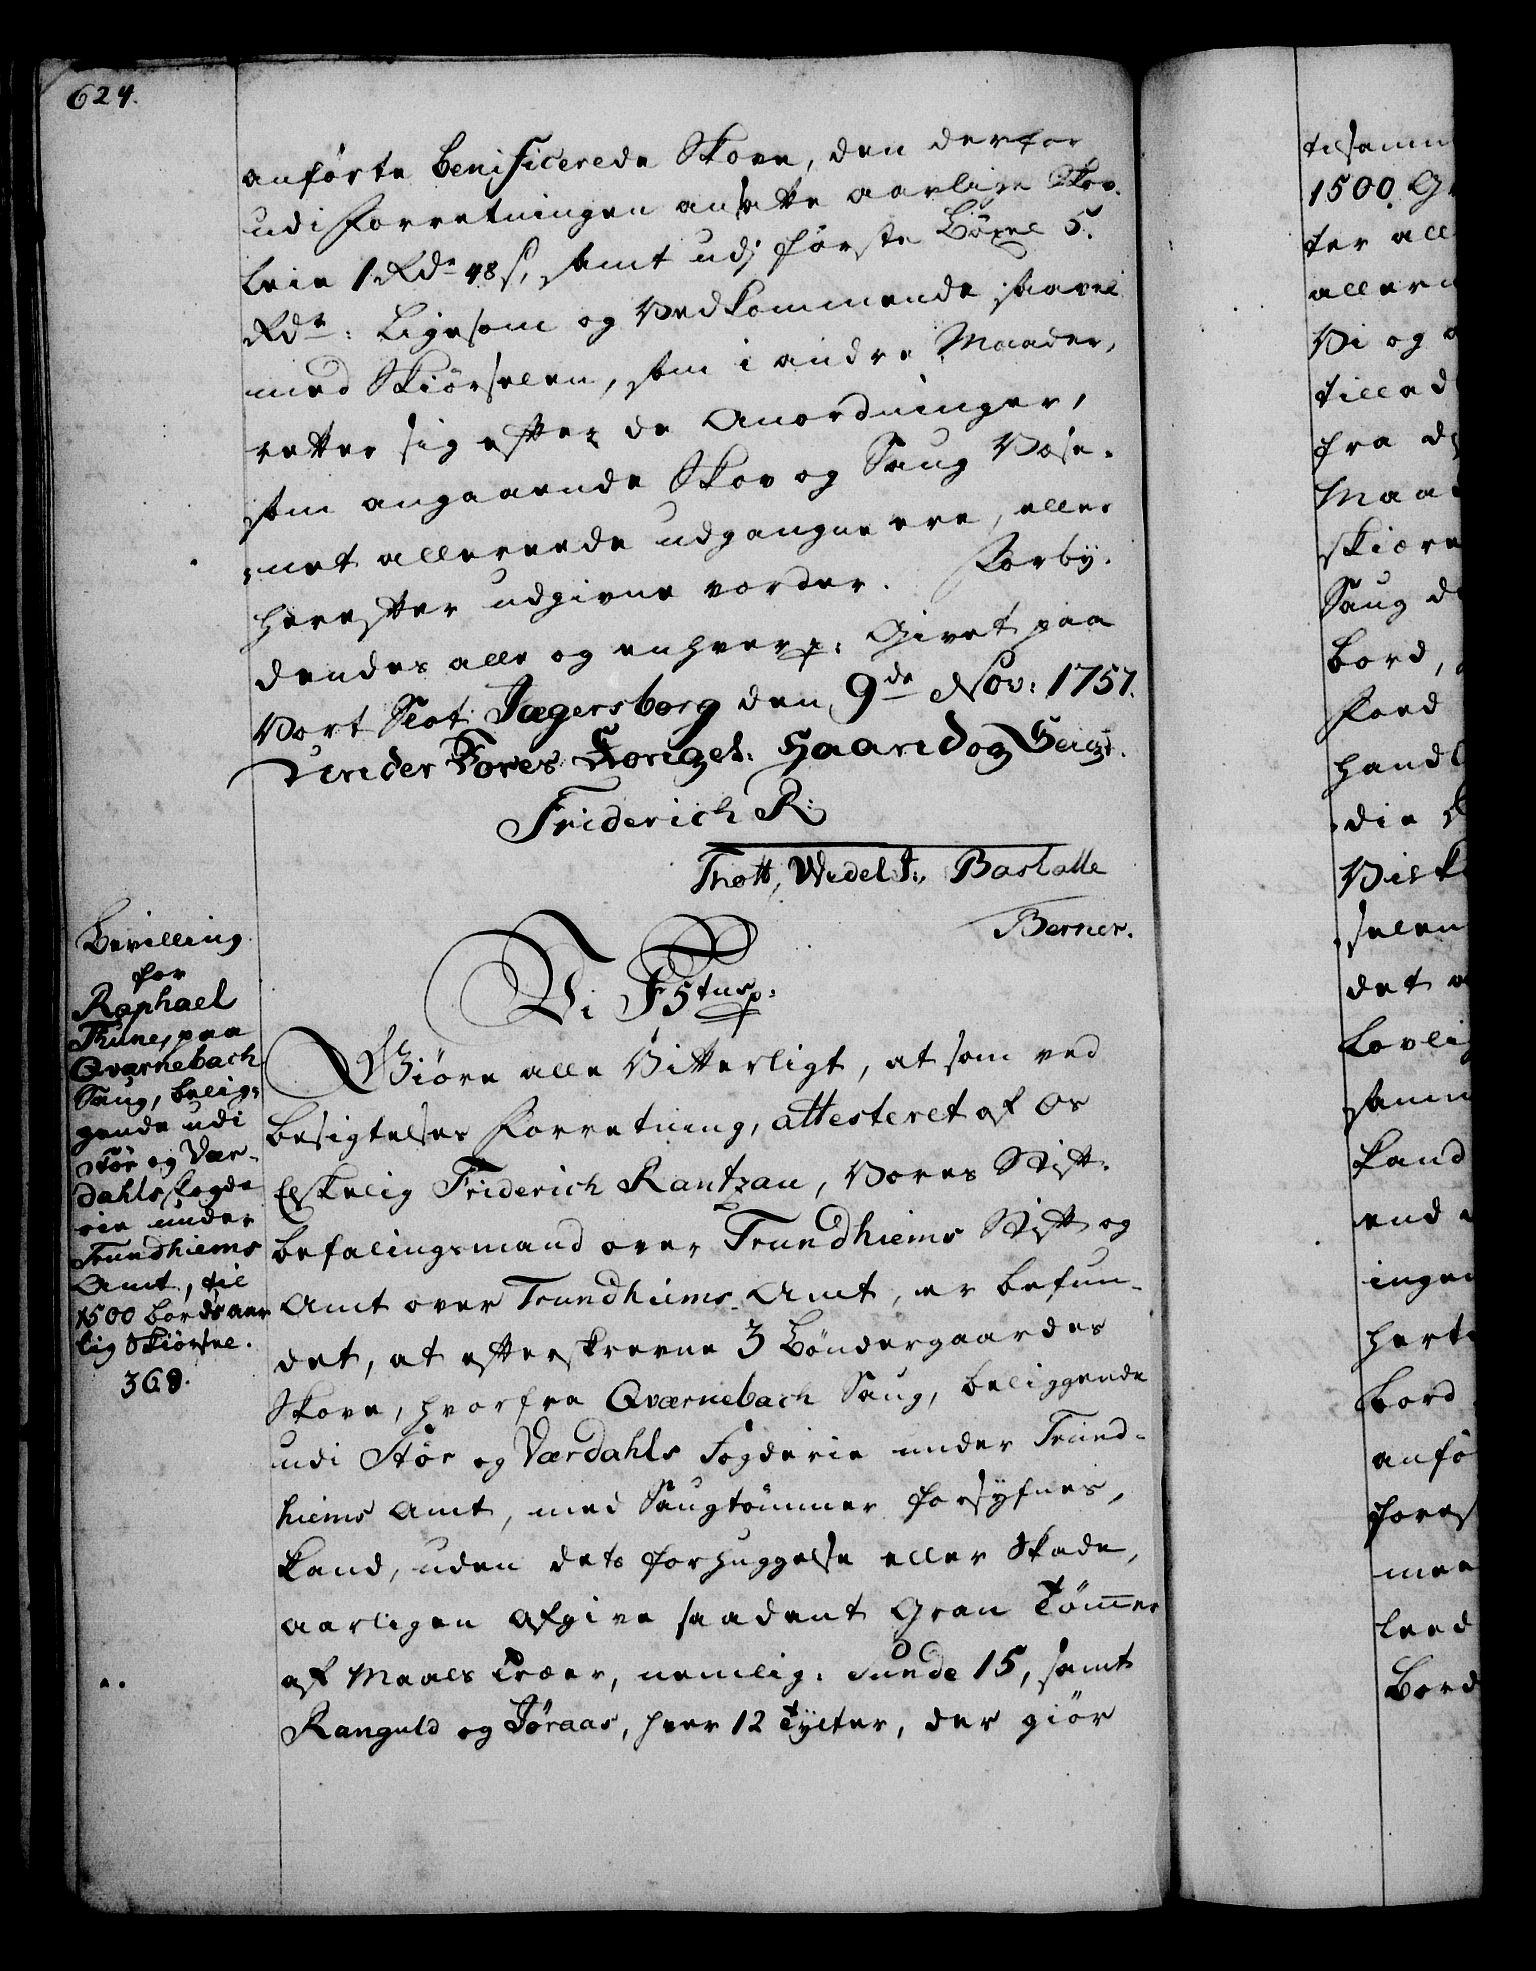 624.
anførte beneficerede Skove, den derfor
udi Forretningen ansatte aarlige Skov-
leie 1 Rdr 48 s, samt udj første Böxel 5.
Rdr: Ligesom og Vedkommende saavel
med Skiörselen, som i andre Maader,
retter sig efter de Anordninger,
som angaaende Skov og Saug Væse-
net allereede udgangne ere, eller
herefter udgivne vorder. Forby-
dendes alle og enhver p: Givet paa
Vort Slot Jægersborg den 9de Nov: 1757.
Under Vores Kongel: Haand og Seigl.
Friderich R:
Thott, Wedel J:, Bartalle
Berner.
Bevilling
for
Raphael
Thune, paa
Qværnebach
Saug, belig-
gende udi
Stör og Vær-
dahls Fogde
rie under
Trundhiems
Amt, til
1500 bords aar
lig Skiörsel.
368.
Vi F5tus p:
Giøre alle Vitterligt, at som ved
besigtelses Forretning, attesteret af Os
Elskelig Friderich Rantzau, Vores Stift-
befalingsmand over Trundhiems Stift og
Amt over Trundhiems Amt, er befun-
det, at efterskrevne 3 Bøndergaardes
Skove, hvorfra Qværnebach Saug, beliggende
udi Stör og Værdahls Fogderie under Trund-
hiems Amt, med Saugtömmer forsÿfnes,
kand, uden dets forhuggelse eller Skade,
aarligen afgive saadant Gran Tömer
af Maals Træer, nemlig: Sunde 15, samt
Ranguld og Jöraas, hver 12 Tÿlter, der giör
tilsamm
1500 G
ter all
allern
Vi og a
tillad
fra d
Maa
skiære
Saug d
bord,
Foed
handl
die
Vilk
selen
det
Lovli
samm
kand
end
ingen
hert
bord
anfö
fores
mee
leed
Bord